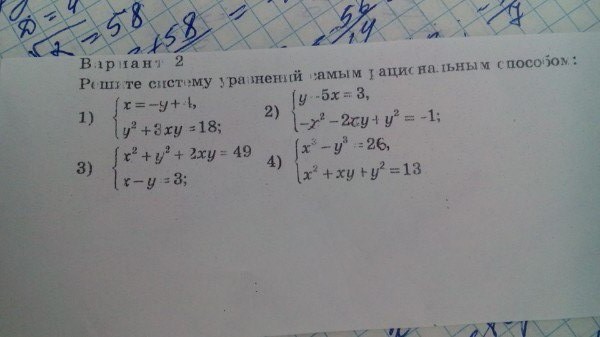 Вариант 2
Решите систему уравнений самым рациональным способом:
1) { x = -y + 4, y² + 3xy = 18;
2) { y - 5x = 3, -x² - 2xy + y² = -1;
3) { x² + y² + 2xy = 49 x - y = 3;
4) { x³ - y³ = 26, x² + xy + y² = 13